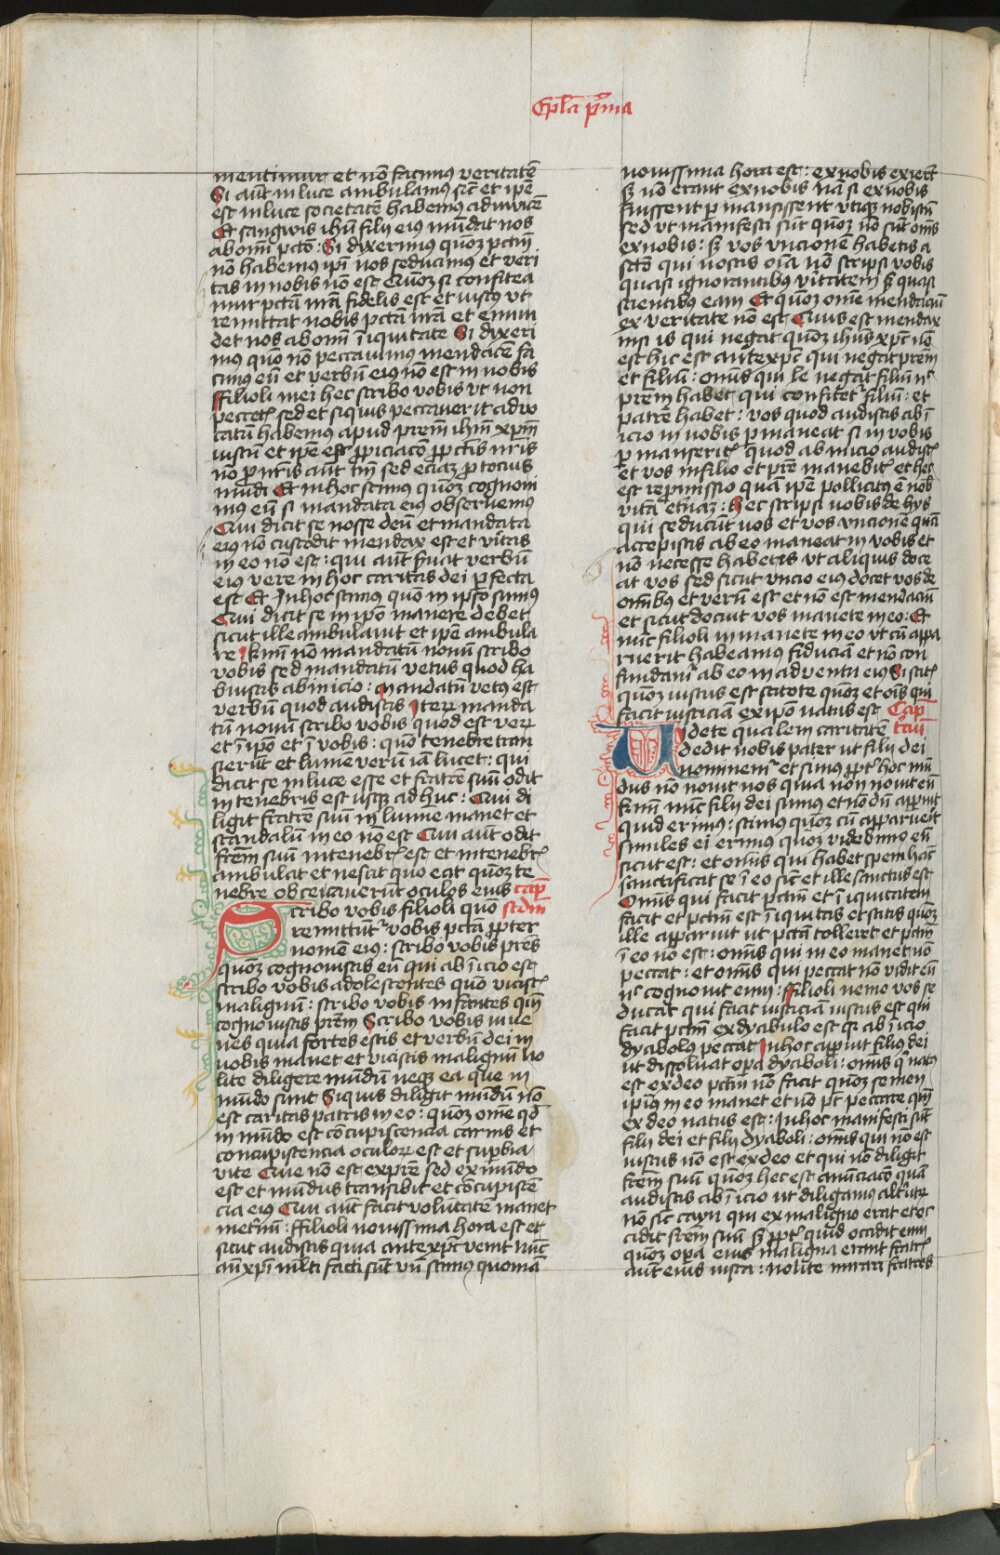 Epl̅a p̅ma
mentimur et no̅ facimꝰ veritate̅
Si aut̅ in luce ambulamꝰ sic̅ et ip̅e
est in luce societate̅ habemꝰ adinvice̅
Et sangwis ih̅u filij eiꝰ mu̅dat nos
ab om̅i pc̅to : Si dixerimus quoꝫ pctm̅
no̅ habemꝰ ip̅i nos seducimꝰ et veri
tas in nobis no̅ est Quoꝫ si confitea
mur pct̅a nr̅a fidelis est et iustꝰ vt
remittat nobis pct̅a nr̅a et emun
det nos ab om̅i i̅iquitate Si dixeri
mꝰ quo̅ no̅ peccauimꝰ mendace̅ fa
cimꝰ eu̅ et verbu̅ eiꝰ no̅ est in nobis
Filioli mei hec scribo vobis vt non
peccetꝭ sed et siquis peccauerit advo
catu̅ habemꝰ apud prem̅ ihm̅ xpm̅
iustu̅ et ip̅e est ꝓpiciaco̅ ꝓ pctis nr̅is
no̅ ꝓ nr̅is aut̅ tm̅ sed eciaꝫ ꝓ tocius
mu̅di Et in hoc scimꝰ quoꝫ cognoui
mꝰ eu̅ si mandata eiꝰ obseruemus
Qui dicit se nosse deu̅ et mandata
eiꝰ no̅ custodit mendax est et vi̅tas
in eo no̅ est : qui aut̅ s̅uat verbu̅
eiꝰ vere in hoc caritas dei ꝑfecta
est Et In hoc scimꝰ quo̅ in ipso sumꝰ
Qui dicit se in ip̅o manere debet
sicut ille ambulauit et ip̅e ambula
re km̅i no̅ mandatu̅ nouu̅ scribo
vobis sed mandatu̅ vetus quod ha
buistis ab inicio : mandatu̅ vetꝰ est
verbu̅ quod audistis Iteꝝ manda
tu̅ nouu̅ scribo vobis quod est veꝝ
et i̅ ip̅o et i̅ vobis : quo̅ tenebre tran
sieru̅t et lume̅ veru̅ ia̅ lucet : qui
dicit se in luce esse et fratre̅ suu̅ odit
in tenebris est usqꝫ ad huc : Qui di
ligit fratre̅ suu̅ in lumi̅e manet et
scandalu̅ in eo no̅ est Qui aut̅ odit
frem̅ suu̅ in tenebrꝭ est et in tenebrꝭ
ambulat et nescit quo eat quoꝫ te
nebre obcecaueru̅t oculos eius cap̅
Scribo vobis filioli quo̅ scdm̅
remittutr̅ vobis pct̅a ꝓpter
nomen eiꝰ : scribo vobis pre̅s
quoꝫ cognouistis eu̅ qui ab i̅icio est
scribo vobis adolescentes quo̅ vicistꝭ
malignu̅ : scribo vobis infantes qm̅
cognouistis prem̅ Scribo vobis iuue
nes quia fortes estis et verbu̅ dei in
vobis manet et vicistis malignu̅ no
lite diligere mu̅du̅ neqꝫ ea que in
mu̅do sunt Siquis diligit mu̅du̅ no̅
est caritas patris in eo : quoꝫ om̅e qd̅
in mu̅do est co̅cupiscencia carnis et
concupistencia oculoꝝ est et suꝑbia
vite Que no̅ est ex pre̅ sed ex mu̅do
est et mu̅dus transibit et co̅cupiste̅
cia eiꝰ Qui aut̅ facit volu̅tate̅ manet
in et̅nu̅ : Filioli nouissima hora est et
sicut audistis quia antexpc̅ venit nu̅c
au̅t xpi̅ ml̅ti facti su̅t vn̅ scimꝰ quoniā
nouissima hora est : ex nobis exieru̅t
sꝫ no̅ erant ex nobis na̅ si ex nobis
fuissent ꝑmansissent vtiqꝫ nobiscu̅
sed vt manifesti su̅t quoꝫ no̅ su̅t om̅s
ex nobis : sꝫ vos vnctione̅ habetis a
sc̅to qui nostis oi̅a no̅ scripsi vobis
quasi ignorantibꝰ vi̅tatem sꝫ quasi
scientibꝰ eam Et quoꝫ om̅e mendaciu̅
ex veritate no̅ est Quis est mendax
nisi is qui negat quoꝫ ihus̅ xpc̅ no̅
est hic est antexpc̅ qui negat prem̅
et filiu̅ : om̅is qui le negat filiu̅ nc̅
prem̅ habet qui confitetr̅ filiu̅ : et
patre̅ habet : vos quod audistis ab i̅
icio in vobis ꝑmaneat si in vobis
ꝑmanserit quod ab inicio audistꝭ
et vos in filio et pre̅ manebitꝭ et hec
est repmissio qua̅ ip̅e pollicitꝰ e̅ nob̅
vita̅ et̅naꝫ : Hec scripsi vobis de hys
qui seducu̅t vos et vos vnctione̅ qua̅
accepistis ab eo maneat in vobis et
no̅ necesse habetis vt aliquis doce
at vos sed sicut vnctio eiꝰ docet vos de
om̅ibꝰ et veru̅ est et no̅ est mendaciu̅
et sicut docuit vos manete in eo : Et
nu̅c filioli in manete in eo vt cu̅ appa
ruerit habeamꝰ fiducia̅ et no̅ con
fundamr̅ ab eo in adventu eiꝰ Si scitꝭ
quoꝫ iustus est scitote quoꝫ et oi̅s qui
facit iusticia̅ ex ip̅o natus est Cap̅
Videte qualem caritate̅ tciu̅
dedit nobis pater ut filij dei
nominemr̅ et simꝰ ꝓpt̅ hoc mu̅
dus no̅ nouit nos quia non nouit eu̅
kmi̅ nu̅c filij dei simus et no̅du̅ apparuit
quid erimꝰ : scimus quoꝫ cu̅ apparuerit
similes ei erimus quoꝫ videbimꝰ eu̅
sicut est : et om̅is qui habet spem hac̅
sanctificat se i̅ eo sic̅ et ille sanctus est
Omnis qui facit pctm̅ et i̅iquitatem
facit et pctm̅ est i̅iquitas et scitis quoꝫ
ille apparuit ut pct̅a tolleret et pctm̅
i̅ eo no̅ est : om̅is qui in eo manet no̅
peccat : et om̅is qui peccat no̅ vidit eu̅
nc̅ cognouit eum : Filioli nemo vos se
ducat qui facit iusticia̅ iustus est qui
facit pctm̅ ex dyabulo est qꝛ ab i̅icio
dyabolꝰ peccat In hoc apparuit filiꝰ dei
ut dissoluat opa̅ dyaboli : om̅is q̅ natꝰ
est ex deo pctm̅ no̅ facit quoꝫ semen
ipiꝰ in eo manet et no̅ pt̅ peccare qm̅
ex deo natus est : In hoc manifesti su̅t
filij dei et filij dyaboli : om̅is qui no̅ est
iustus no̅ est ex deo et qui no̅ diligit
frem̅ suu̅ quoꝫ hec est anu̅ciaco̅ qua̅
audistis ab i̅icio ut diligamꝰ alt̅utꝝ
no̅ sic̅ cayn qui ex maligno erat et oc
cidit frem̅ suu̅ sꝫ ꝓpt̅ quid occidit eum
quoꝫ opa̅ eius maligna erant fratrꝭ
aut̅ eius iusta : nolite mirari fratres